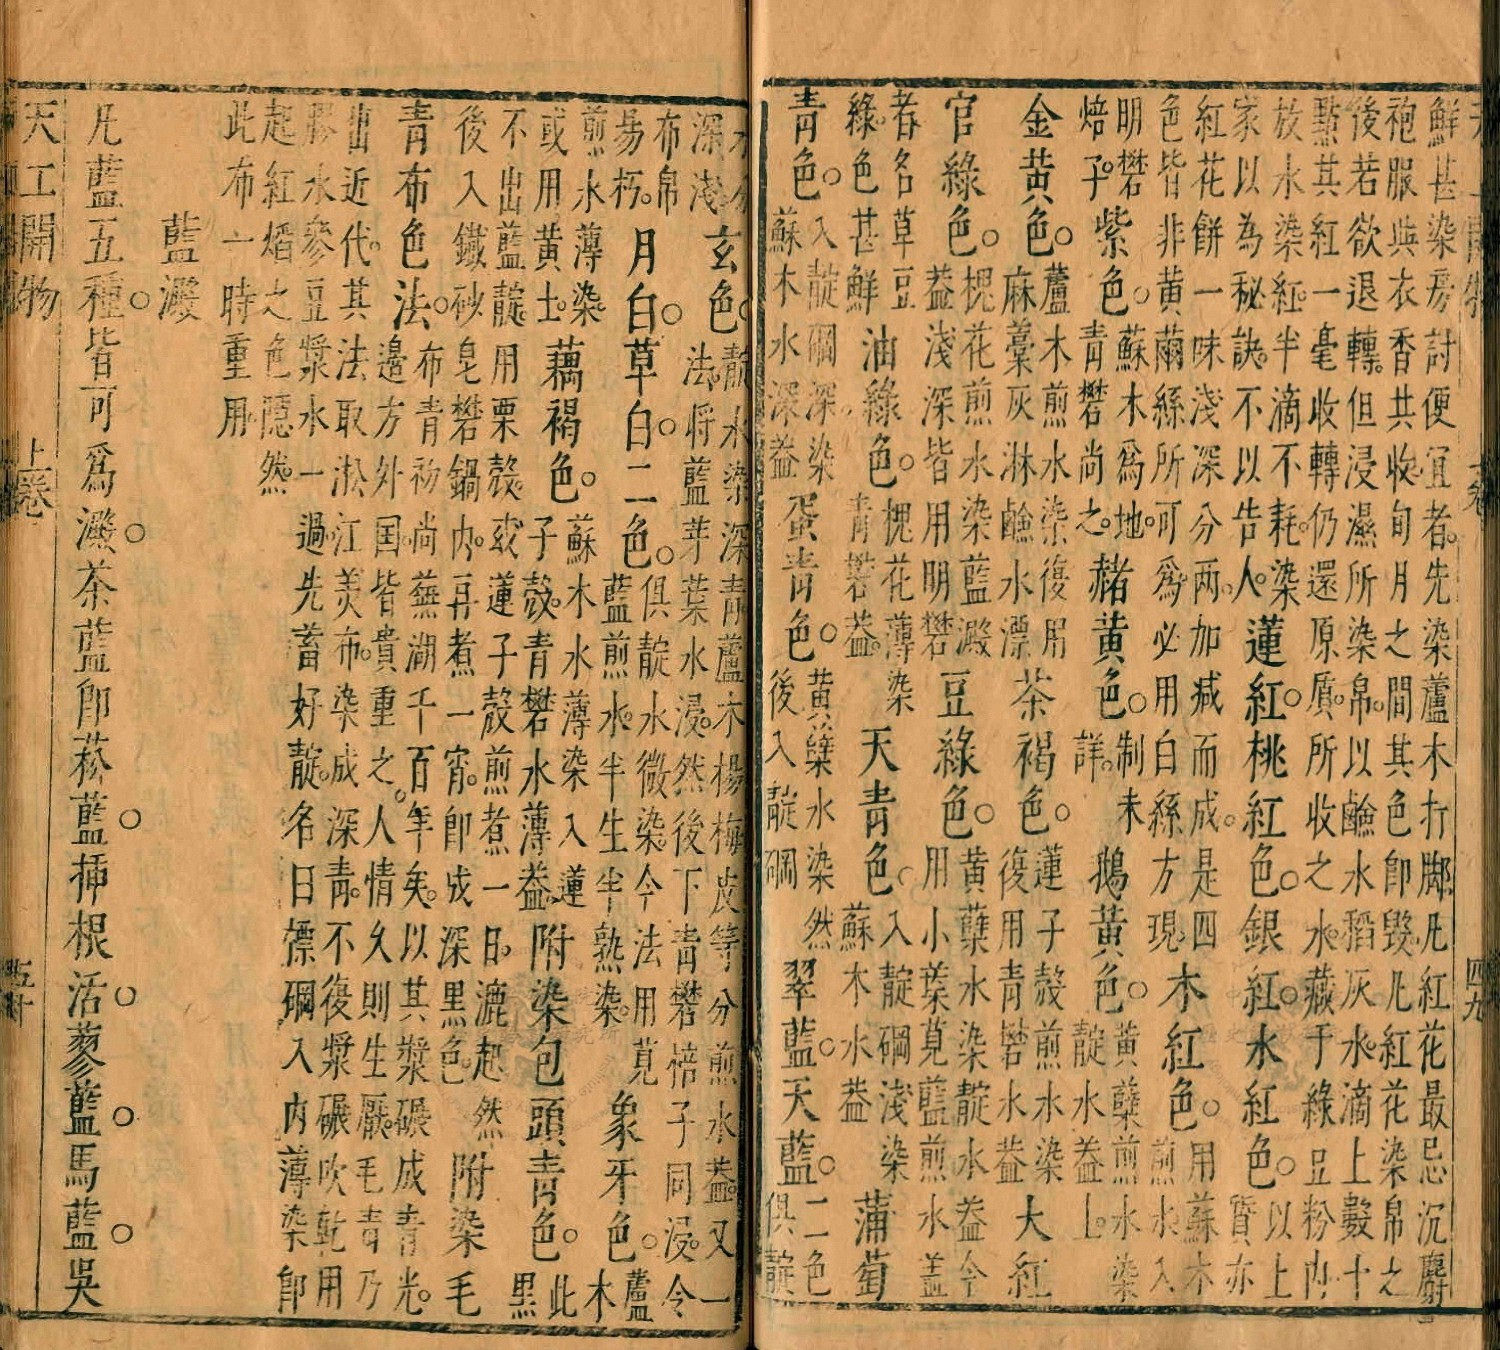 鮮甚染房討便宜者先染蘆木打脚凡紅花最忌沉麝
袍服與衣香共收旬月之間其色卽毀凡紅花染帛之
後若欲退轉但浸濕所染帛以鹼水稻灰水滴上數十
點其紅一毫收轉仍還原質所收之水藏于綠豆粉內
放水染紅半滴不耗染
家以為秘訣不以告人
蓮紅。桃紅色。銀紅。水紅色。
以上質亦
紅花餅一味淺深分两加減而成是四
色皆非黃繭絲所可為必用白絲方現
木紅色。
用蘇木煎水入
明礬
棓子
紫色。
蘇木為地
青礬尚之
赭黃色。
制未詳
鵞黃色。
黃蘗煎水染
靛水葢上
金黃色。
蘆木煎水染復用
麻藁灰淋鹼水漂
茶褐色。
蓮子殼煎水染
復用青礬水葢
大紅
官綠色。
槐花煎水染藍澱
葢淺深皆用明礬
豆綠色。
黃蘗水染靛水葢今
用小葉莧藍煎水葢
者名草豆
綠色甚鮮
油綠色。
槐花薄染
青礬葢
天青色。
入靛碙淺染
蘇木水葢
蒲萄
青色。
入靛碙深染
蘇木水深葢
蛋青色。
黃蘗水染然
後入靛碙
翠藍。天藍。
二色
俱靛
水分
深淺
玄色。
靛水染深青蘆木楊梅皮等分煎水葢又一
法將藍芽葉水浸然後下青礬棓子同浸今
布帛
易朽
月白。草白。二色。
俱靛水微染今法用莧
藍煎水半生半熟染
象牙色。
蘆木
煎水薄染
或用黃土
藕褐色。
蘇木水薄染入蓮
子殼青礬水薄葢
附染包頭青色。
此黑
不出藍靛用栗殼或蓮子殼煎煮一日漉起然
後入鐵砂皂礬鍋內再煮一宵卽成深黑色
附染毛
青布色法。
布青初尚蕪湖千百年矣以其漿碾成青光
邊方外国皆貴重之人情久則生厭毛青乃
出近代其法取淞江美布染成深青不復漿碾吹乾用
膠水參豆漿水一過先蓄好靛名曰標碙入內薄染卽
起紅熖之色隱然
此布一時重用
藍澱
凡藍五種。皆可爲澱。茶藍卽菘藍。挿根活。蓼藍。馬藍。吳
天工開物 上卷 五十